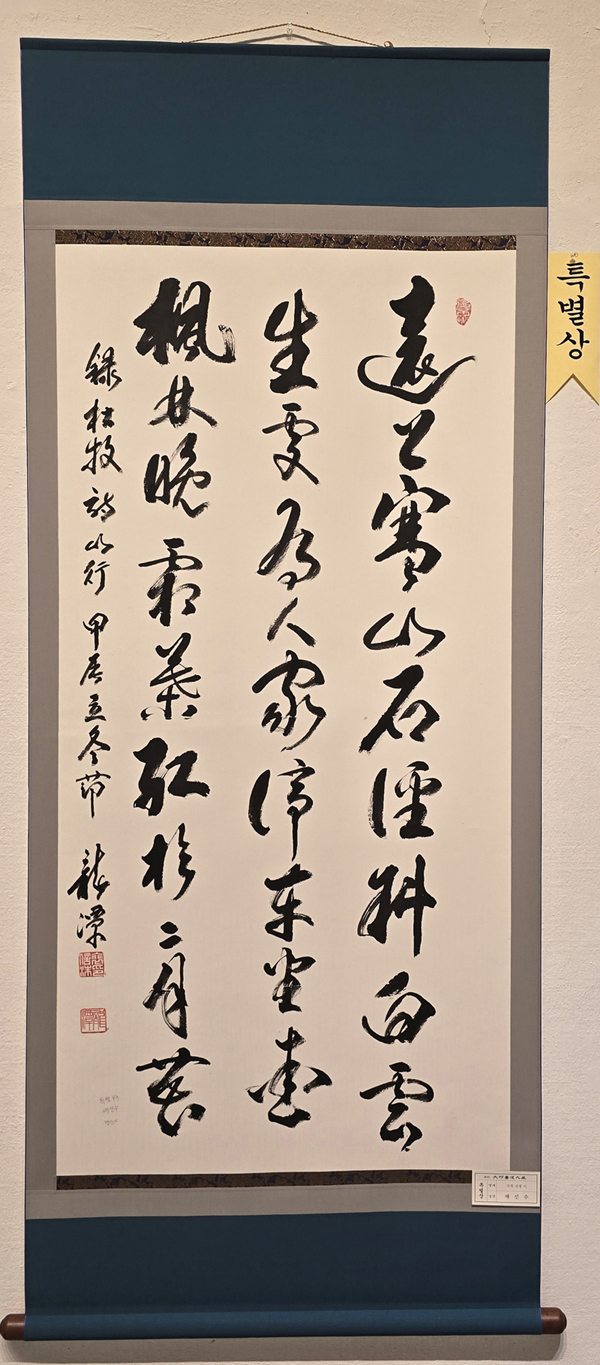 遠上寒山石徑斜白雲
生處為人家停車坐愛
楓林晚霜葉紅於二月花
錄杜牧詩山行 甲辰立冬節 龍
특별상
특별상